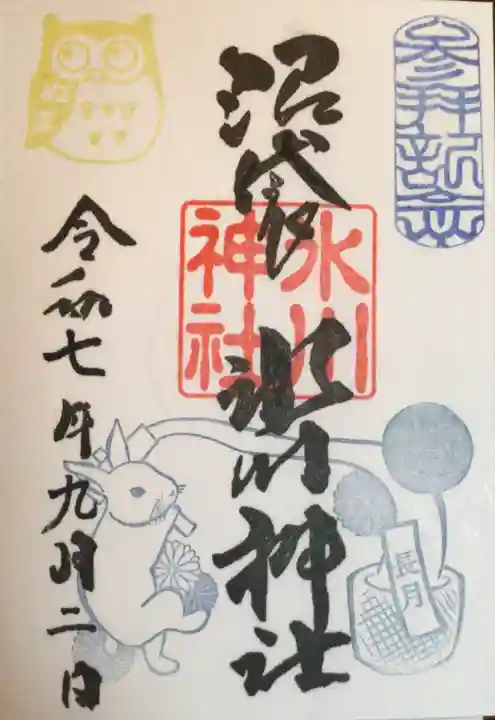 参拝記念
沼袋 氷川神社
氷川
神社
長月
令和七年九月二日